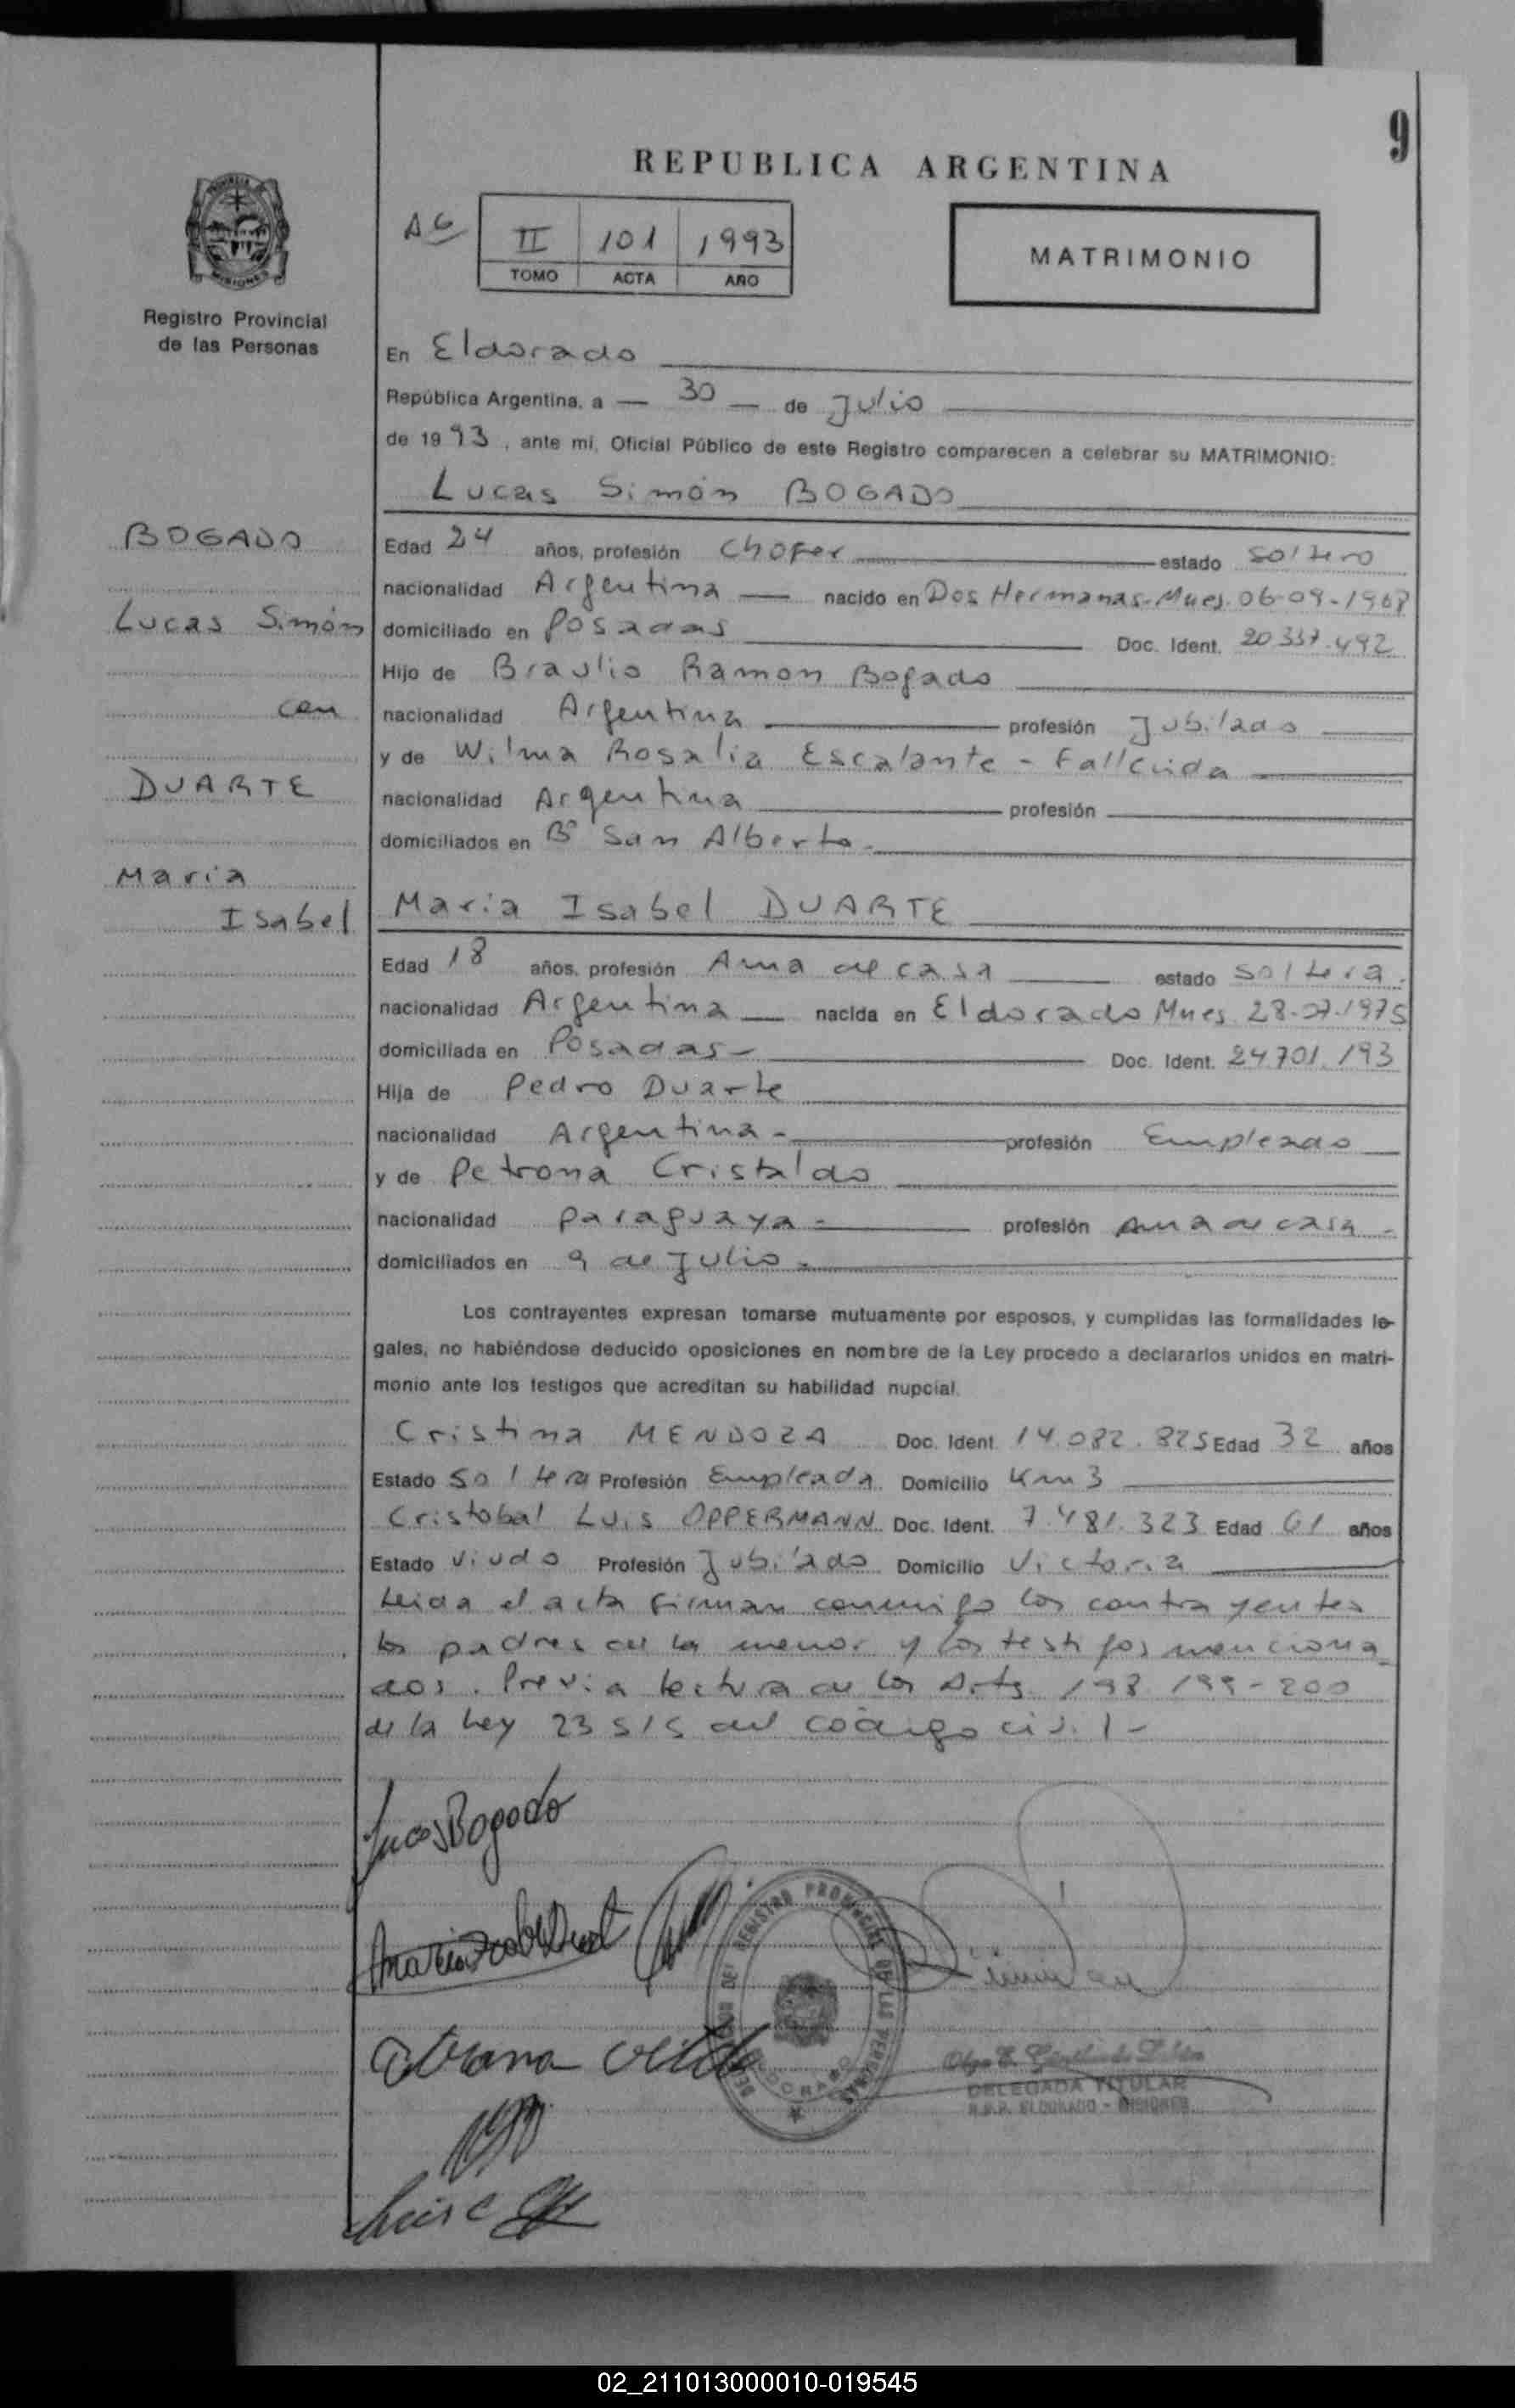 9
REPUBLICA ARGENTINA
II 101 1993
TOMO ACTA AÑO
MATRIMONIO
Registro Provincial
de las Personas
En Eldorado
República Argentina, a — 30 — de Julio
de 1993, ante mí, Oficial Público de este Registro comparecen a celebrar su MATRIMONIO:
Lucas Simón BOGADO
BOGADO
Lucas Simón
con
DUARTE
Maria
Isabel
Edad 24 años, profesión Chofer estado soltero
nacionalidad Argentina — nacido en Dos Hermanas-Mnes. 06-09-1968
domiciliado en Posadas Doc. Ident. 20.337.492
Hijo de Braulio Ramon Bogado
nacionalidad Argentina profesión Jubilado
y de Wilma Rosalia Escalante - Fallecida
nacionalidad Argentina profesión
domiciliados en Bº San Alberto.
Maria Isabel DUARTE
Edad 18 años, profesión Ama de casa estado soltera.
nacionalidad Argentina — nacida en Eldorado Mnes 28-07-1975
domiciliada en Posadas- Doc. Ident. 24.701.193
Hija de Pedro Duarte
nacionalidad Argentina- profesión Empleado
y de Petrona Cristaldo
nacionalidad paraguaya- profesión Ama de casa-
domiciliados en 9 de Julio.
Los contrayentes expresan tomarse mutuamente por esposos, y cumplidas las formalidades le-
gales, no habiéndose deducido oposiciones en nombre de la Ley procedo a declararlos unidos en matri-
monio ante los testigos que acreditan su habilidad nupcial.
Cristina MENDOZA Doc. Ident. 14.082.825 Edad 32 años
Estado soltera Profesión Empleada. Domicilio Km 3
Cristobal Luis OPPERMANN Doc. Ident. 7.481.323 Edad 61 años
Estado viudo Profesión Jubilado Domicilio Victoria
Leida el acta firman conmigo los contrayentes
los padres de la menor y los testigos menciona_
dos. Previa lectura de los Arts. 198 199-200
de la Ley 23515 del código civil-
Lucas Bogado
DELEGADA TITULAR
R.P.P. ELDORADO - MISIONES
02_211013000010-019545